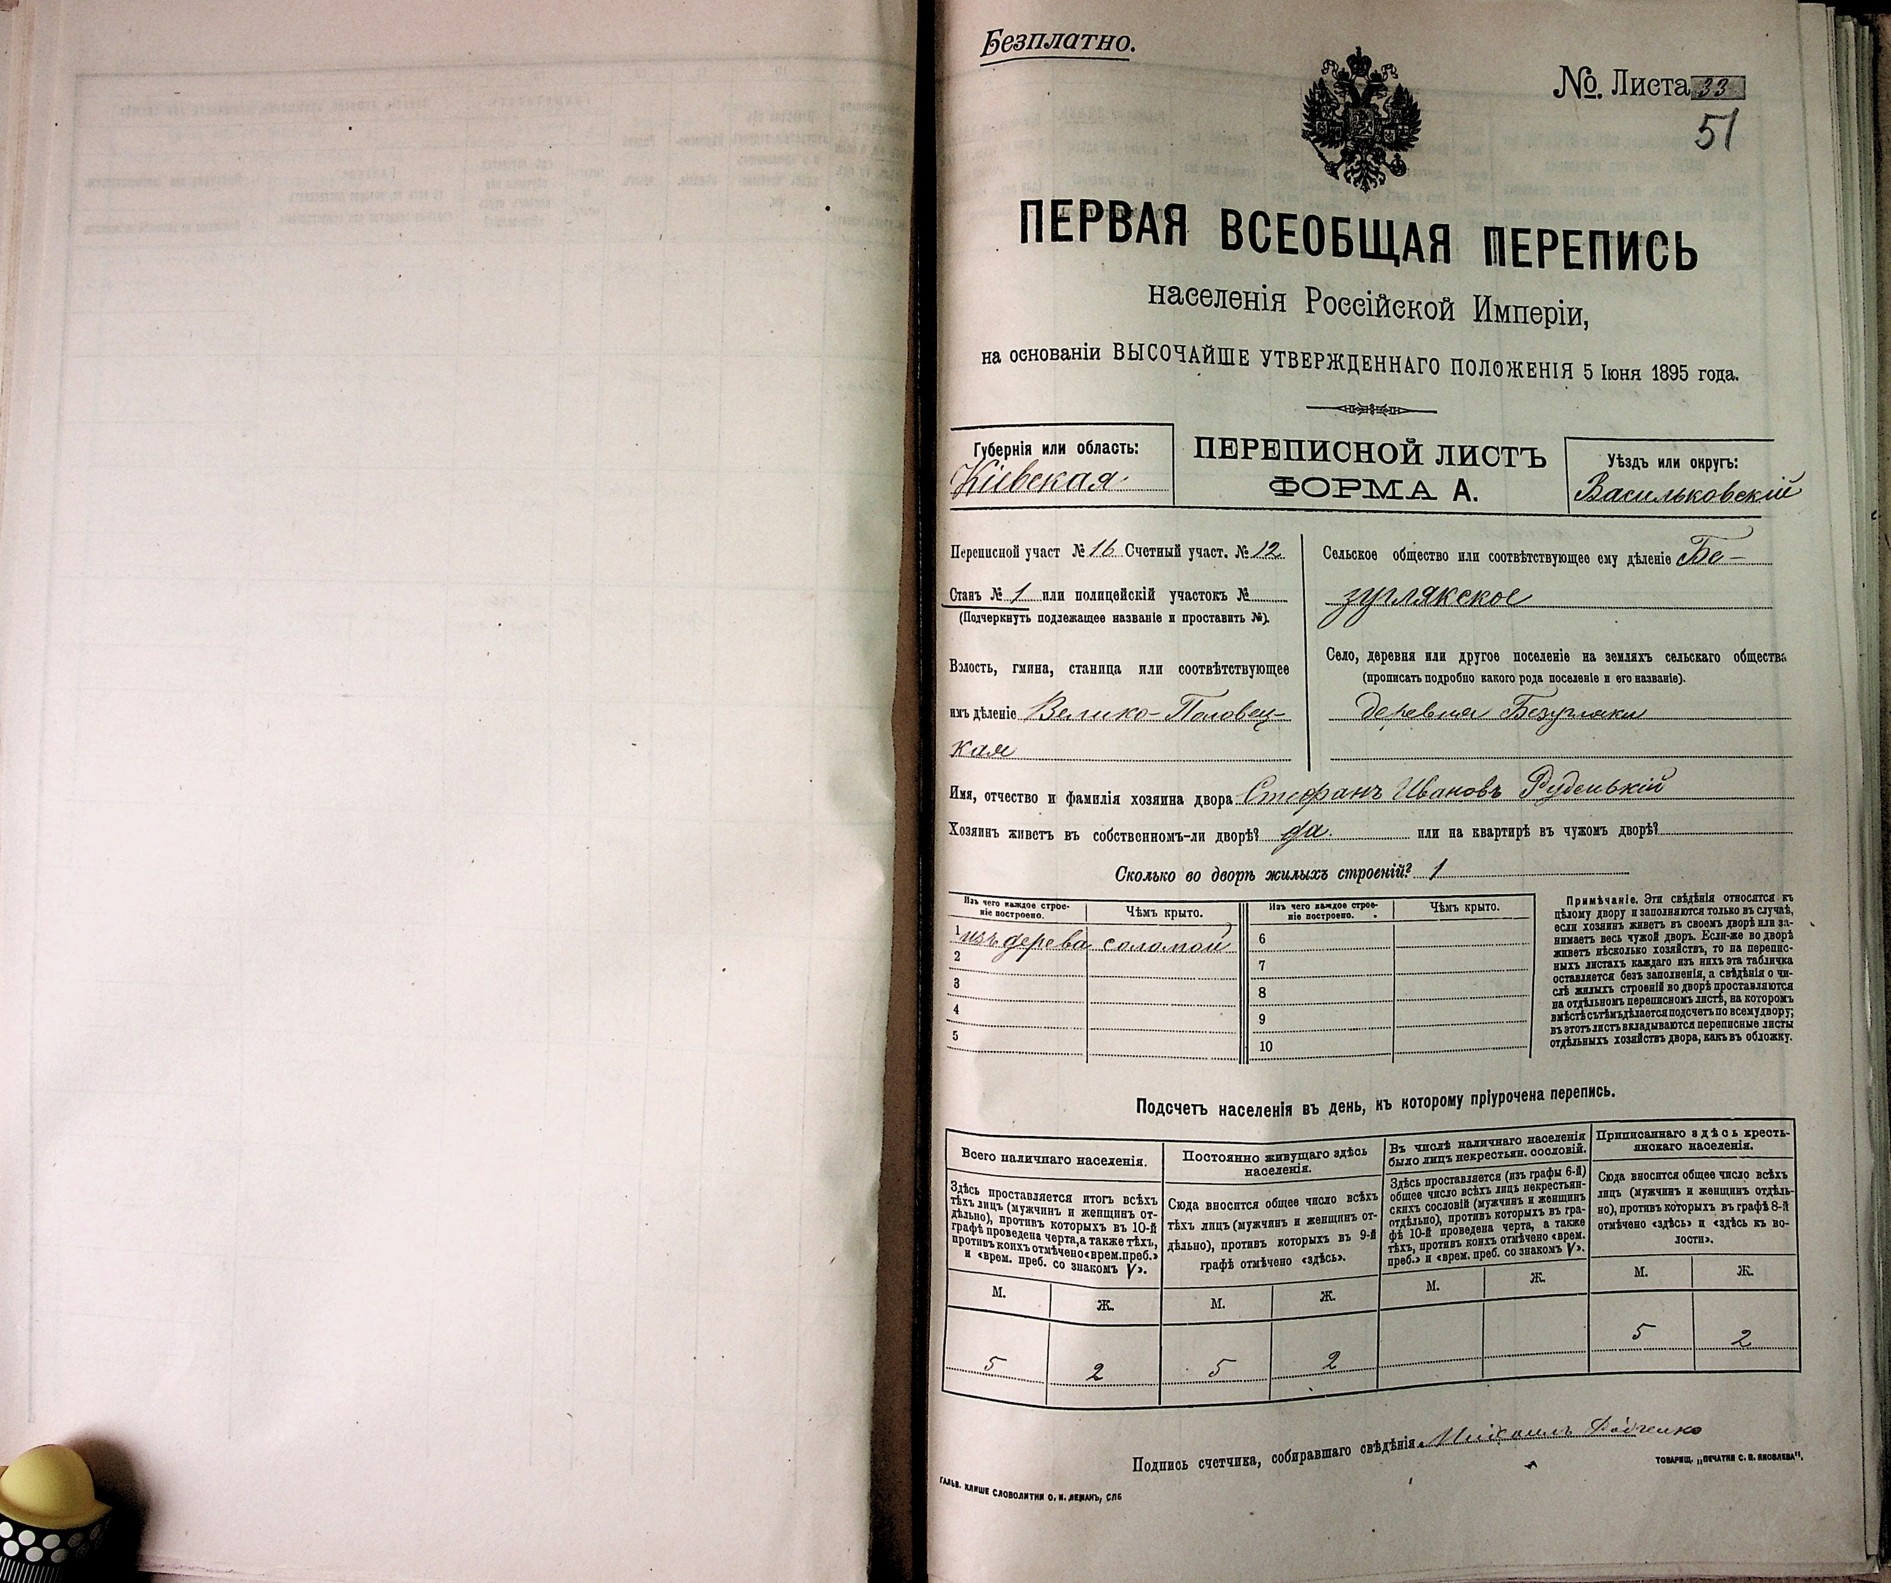 Безплатно.
№. Листа 33
51
ПЕРВАЯ ВСЕОБЩАЯ ПЕРЕПИСЬ
населенія Россійской Имперіи,
на основаніи ВЫСОЧАЙШЕ УТВЕРЖДЕННАГО ПОЛОЖЕНІЯ 5 Іюня 1895 года.
Губернія или область:
Кіевская
ПЕРЕПИСНОЙ ЛИСТЪ
ФОРМА А.
Уѣздъ или округъ:
Васильковскій
Переписной участ № 16 Счетный участ. № 12
Станъ № 1 или полицейскій участокъ №
(Подчеркнуть подлежащее названіе и проставить №).
Волость, гмина, станица или соотвѣтствующее
имъ дѣленіе Велико-Половец-
кая
Сельское общество или соотвѣтствующее ему дѣленіе Бе-
зуглякское
Село, деревня или другое поселеніе на земляхъ сельскаго общества
(прописать подробно какого рода поселеніе и его названіе).
деревня Безугляки
Имя, отчество и фамилія хозяина двора Стефанъ Ивановъ Руденькій
Хозяинъ живетъ въ собственномъ-ли дворѣ? да. или на квартирѣ въ чужомъ дворѣ?
Сколько во дворѣ жилыхъ строеній? 1
Изъ чего каждое строе-
ніе построено.
Чѣмъ крыто.
Изъ чего каждое строе-
ніе построено.
Чѣмъ крыто.
1 изъ дерева соломой
2
3
4
5
6
7
8
9
10
Примѣчаніе. Эти свѣдѣнія относятся къ
цѣлому двору и заполняются только въ случаѣ,
если хозяинъ живетъ въ своемъ дворѣ или за-
нимаетъ весь чужой дворъ. Если-же во дворѣ
живетъ нѣсколько хозяйствъ, то на перепис-
ныхъ листахъ каждаго изъ нихъ эта табличка
оставляется безъ заполненія, а свѣдѣнія о чи-
слѣ жилыхъ строеній во дворѣ проставляются
на отдѣльномъ переписномъ листѣ, на которомъ
вмѣстѣ съ тѣмъ дѣлается подсчетъ по всему двору;
въ этотъ листъ вкладываются переписные листы
отдѣльныхъ хозяйствъ двора, какъ въ обложку.
Подсчетъ населенія въ день, къ которому пріурочена перепись.
Всего наличнаго населенія.
Здѣсь проставляется итогъ всѣхъ
тѣхъ лицъ (мужчинъ и женщинъ от-
дѣльно), противъ которыхъ въ 10-й
графѣ проведена черта, а также тѣхъ,
противъ коихъ отмѣчено «врем. преб.»
и «врем. преб. со знакомъ V».
М.
Ж.
5
2
Постоянно живущаго здѣсь
населенія.
Сюда вносится общее число всѣхъ
тѣхъ лицъ (мужчинъ и женщинъ от-
дѣльно), противъ которыхъ въ 9-й
графѣ отмѣчено «здѣсь».
М.
Ж.
5
2
Въ числѣ наличнаго населенія
было лицъ некрестьян. сословій.
Здѣсь проставляется (изъ графы 6-й)
общее число всѣхъ лицъ некрестьян-
скихъ сословій (мужчинъ и женщинъ
отдѣльно), противъ которыхъ въ гра-
фѣ 10-й проведена черта, а также
тѣхъ, противъ коихъ отмѣчено «врем.
преб.» и «врем. преб. со знакомъ V».
М.
Ж.
Приписаннаго здѣсь кресть-
янскаго населенія.
Сюда вносится общее число всѣхъ
лицъ (мужчинъ и женщинъ отдѣль-
но), противъ которыхъ въ графѣ 8-й
отмѣчено «здѣсь» и «здѣсь къ во-
лости».
М.
Ж.
5
2
Подпись счетчика, собиравшаго свѣдѣнія. Михаилъ
ГАЛЬВ. КЛИШЕ СЛОВОЛИТНИ О. И. ЛЕМАНЪ, СПБ
ТОВАРИЩ. „ПЕЧАТНИ С. П. ЯКОВЛЕВА".